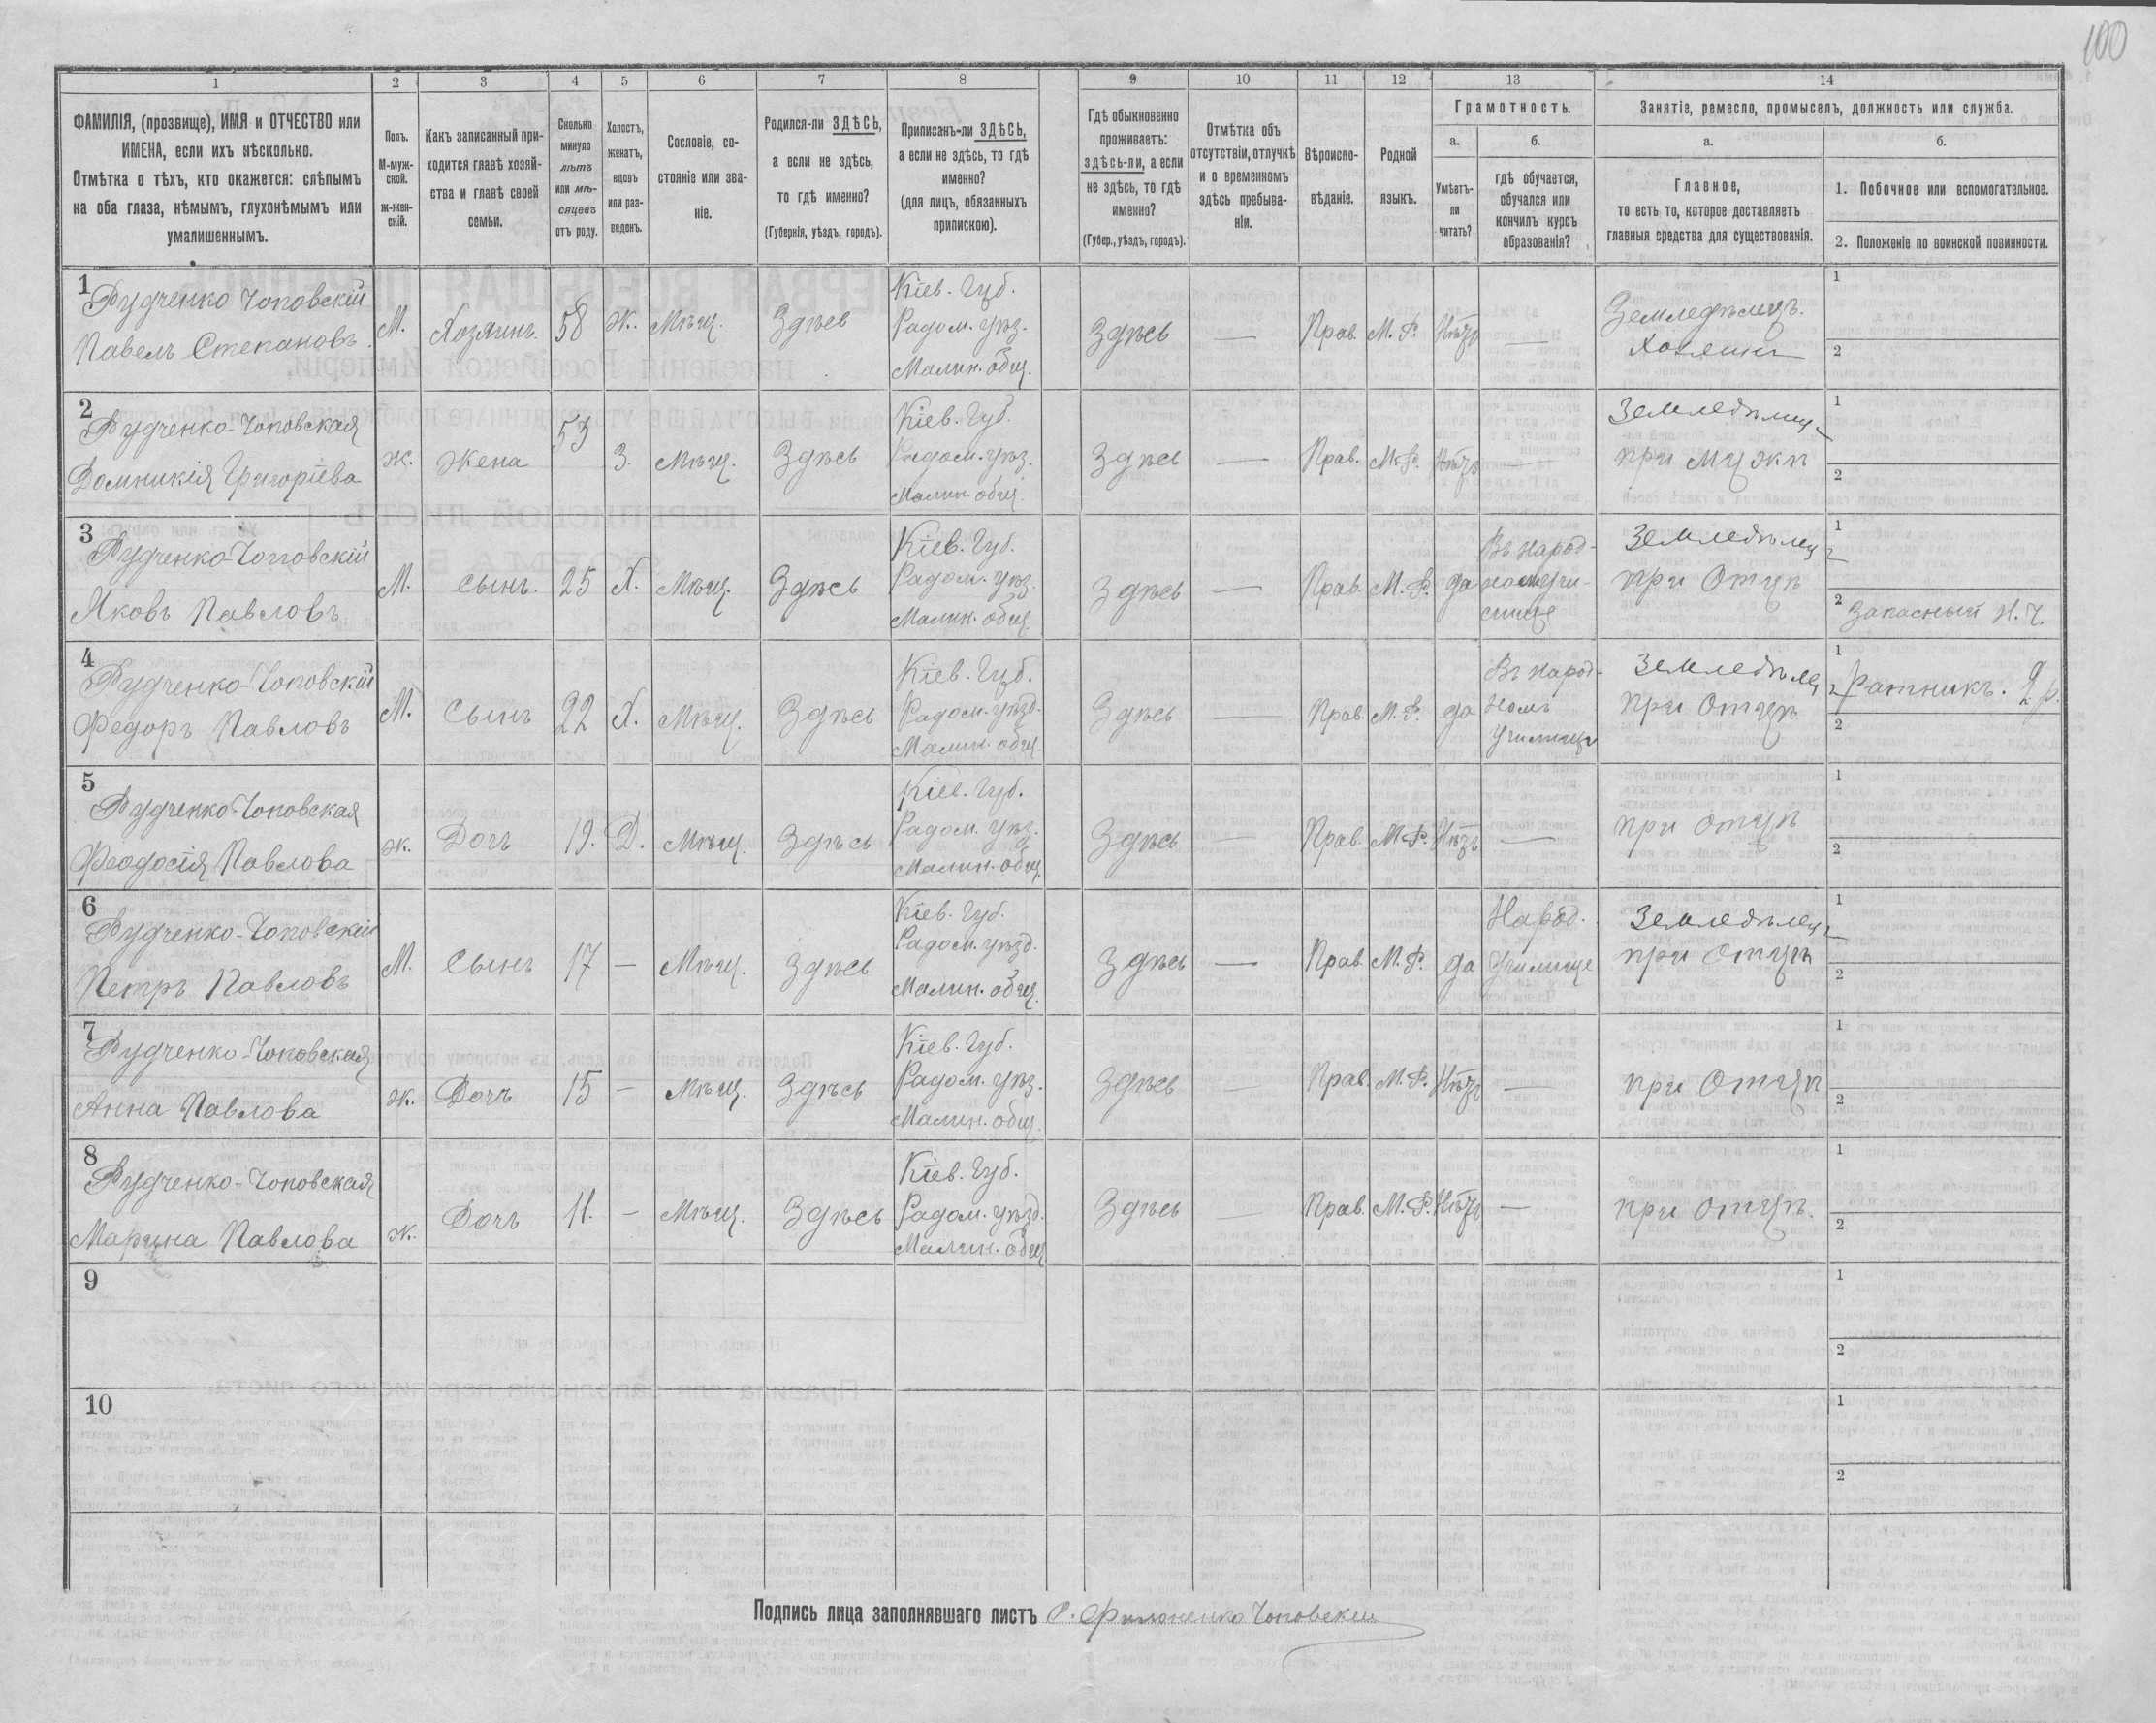 100
1 2 3 4 5 6 7 8 9 10 11 12 13 14
ФАМИЛІЯ, (прозвище), ИМЯ и ОТЧЕСТВО или
ИМЕНА, если ихъ нѣсколько.
Отмѣтка о тѣхъ, кто окажется: слѣпымъ
на оба глаза, нѣмымъ, глухонѣмымъ или
умалишеннымъ.
Полъ.
М-муж-
ской.
ж-жен-
скій.
Какъ записанный при-
ходится главѣ хозяй-
ства и главѣ своей
семьи.
Сколько
минуло
лѣтъ
или мѣ-
сяцевъ
отъ роду.
Холостъ,
женатъ,
вдовъ
или раз-
веденъ.
Сословіе, со-
стояніе или зва-
ніе.
Родился-ли ЗДѢСЬ,
а если не здѣсь,
то гдѣ именно?
(Губернія, уѣздъ, городъ).
Приписанъ-ли ЗДѢСЬ,
а если не здѣсь, то гдѣ
именно?
(для лицъ, обязанныхъ
припискою).
Гдѣ обыкновенно
проживаетъ:
здѣсь-ли, а если
не здѣсь, то гдѣ
именно?
(Губер., уѣздъ, городъ).
Отмѣтка объ
отсутствіи, отлучкѣ
и о временномъ
здѣсь пребыва-
ніи.
Вѣроиспо-
вѣданіе.
Родной
языкъ.
Грамотность.
а.
Умѣетъ-
ли
читать?
б.
гдѣ обучается,
обучался или
кончилъ курсъ
образованія?
Занятіе, ремесло, промыселъ, должность или служба.
а.
Главное,
то есть то, которое доставляетъ
главныя средства для существованія.
б.
1. Побочное или вспомогательное.
2. Положеніе по воинской повинности.
1
Рудченко Чоповскій
Павелъ Степановъ
М.
Хозяинъ.
58
ж.
Мѣщ.
Здѣсь
Кіев. Губ.
Радом. уѣз.
Малин. общ.
Здѣсь
—
Прав.
М. Р.
Нѣтъ
—
Земледѣлецъ.
Хозяинъ
1
2
2
Рудченко-Чоповская
Домникія Григоріева
ж.
жена
53
З.
Мѣщ.
Здѣсь
Кіев. Губ.
Радом. уѣз.
Малин. общ.
Здѣсь
—
Прав.
М. Р.
Нѣтъ
Земледѣлец
при мужѣ
1
2
3
Рудченко-Чоповскій
Яковъ Павловъ
М.
сынъ.
25
Х.
Мѣщ.
Здѣсь
Кіев. Губ.
Радом. уѣз.
Малин. общ.
Здѣсь
—
Прав.
М. Р.
да
Въ народ-
номъ учи-
лище
Земледѣлец
при Отцѣ
1
2 Запасный Н. Ч.
4
Рудченко-Чоповскій
Федоръ Павловъ
М.
Сынъ
22
Х.
Мѣщ.
Здѣсь
Кіев. Губ.
Радом. уѣзд.
Малин. общ.
Здѣсь
—
Прав.
М. Р.
да
Въ народ-
номъ
училищѣ
Земледѣлец
при Отцѣ
1 Ратникъ. 2 р.
2
5
Рудченко-Чоповская
Феодосія Павлова
ж.
Дочь
19.
Д.
Мѣщ.
Здѣсь
Кіев. Губ.
Радом. уѣз.
Малин. общ.
Здѣсь
—
Прав.
М. Р.
Нѣтъ
—
при отцѣ
1
2
6
Рудченко-Чоповскій
Петръ Павловъ
М.
Сынъ
17
—
Мѣщ.
Здѣсь
Кіев. Губ.
Радом. уѣзд.
Малин. общ.
Здѣсь
—
Прав.
М. Р.
да
Народ.
Училище
Земледѣлец
при отцѣ
1
2
7
Рудченко-Чоповская
Анна Павлова
ж.
Дочь
15
—
Мѣщ.
Здѣсь
Кіев. Губ.
Радом. уѣз.
Малин. общ.
Здѣсь
—
Прав.
М. Р.
Нѣтъ
—
при Отцѣ
1
2
8
Рудченко-Чоповская
Марина Павлова
ж.
Дочь
11.
—
Мѣщ.
Здѣсь
Кіев. Губ.
Радом. уѣзд.
Малин. общ.
Здѣсь
—
Прав.
М. Р.
Нѣтъ
—
при отцѣ.
1
2
9
1
2
10
1
2
Подпись лица заполнявшаго листъ Филоненко Чоповскій